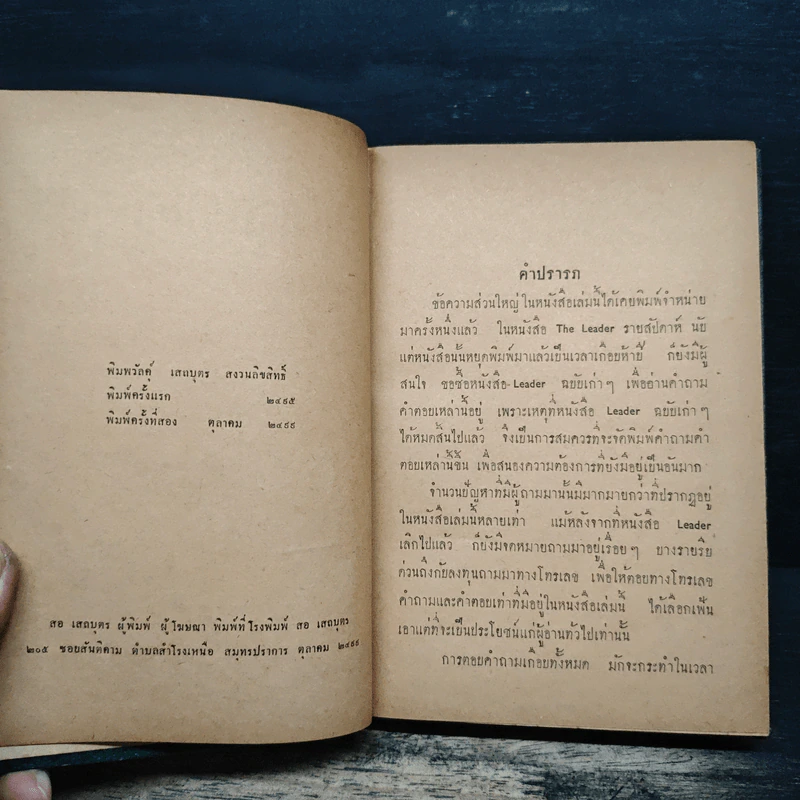 พิมพวัลคุ์ เสถบุตร สงวนลิขสิทธิ์
พิมพ์ครั้งแรก ๒๔๙๕
พิมพ์ครั้งที่สอง ตุลาคม ๒๔๙๙
สอ เสถบุตร ผู้พิมพ์ ผู้โฆษณา พิมพ์ที่โรงพิมพ์ สอ เสถบุตร
๒๐๕ ซอยสันติคาม ตำบลสำโรงเหนือ สมุทรปราการ ตุลาคม ๒๔๙๙
คำปรารภ
ข้อความส่วนใหญ่ในหนังสือเล่มนี้ได้เคยพิมพ์จำหน่าย
มาครั้งหนึ่งแล้ว ในหนังสือ The Leader รายสัปดาห์ นับ
แต่หนังสือนั้นหยุดพิมพ์มาแล้วเป็นเวลาเกือบห้าปี ก็ยังมีผู้
สนใจ ขอซื้อหนังสือ Leader ฉบับเก่าๆ เพื่ออ่านคำถาม
คำตอบเหล่านี้อยู่ เพราะเหตุที่หนังสือ Leader ฉบับเก่าๆ
ได้หมดสิ้นไปแล้ว จึงเป็นการสมควรที่จะจัดพิมพ์คำถามคำ
ตอบเหล่านี้ขึ้น เพื่อสนองความต้องการที่ยังมีอยู่เป็นอันมาก
จำนวนปัญหาที่มีผู้ถามมานั้นมีมากมายกว่าที่ปรากฏอยู่
ในหนังสือเล่มนี้หลายเท่า แม้หลังจากที่หนังสือ Leader
เลิกไปแล้ว ก็ยังมีจดหมายถามมาอยู่เรื่อยๆ บางรายรีบ
ด่วนถึงกับลงทุนถามมาทางโทรเลข เพื่อให้ตอบทางโทรเลข
คำถามและคำตอบเท่าที่มีอยู่ในหนังสือเล่มนี้ ได้เลือกเฟ้น
เอาแต่ที่จะเป็นประโยชน์แก่ผู้อ่านทั่วไปเท่านั้น
การตอบคำถามเกือบทั้งหมด มักจะกระทำในเวลา